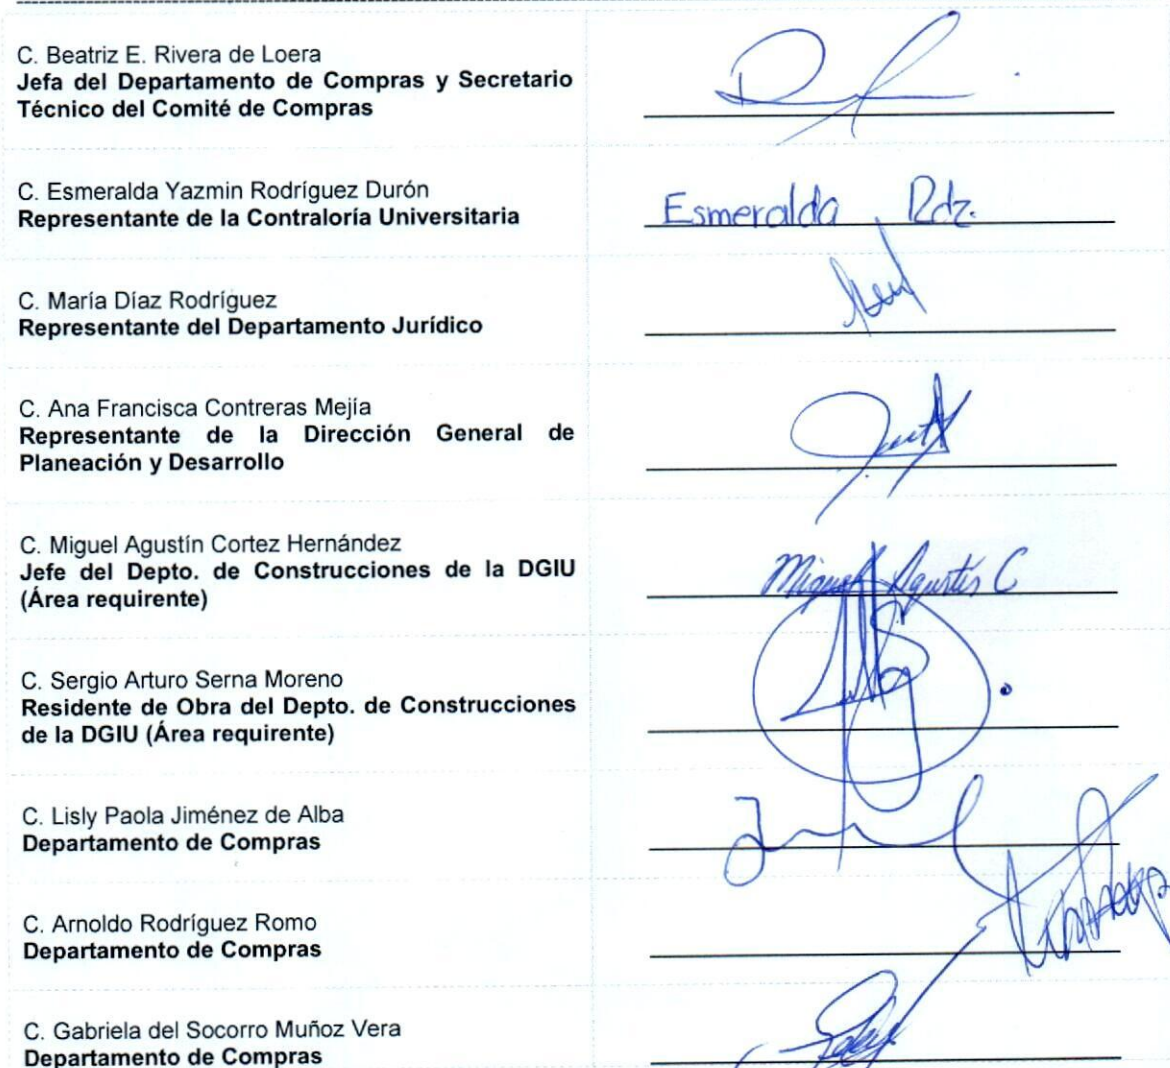 C. Beatriz E. Rivera de Loera
Jefa del Departamento de Compras y Secretario
Técnico del Comité de Compras
C. Esmeralda Yazmin Rodríguez Durón
Representante de la Contraloría Universitaria
Esmeralda Rdz.
C. María Díaz Rodríguez
Representante del Departamento Jurídico
C. Ana Francisca Contreras Mejía
Representante de la Dirección General de
Planeación y Desarrollo
C. Miguel Agustín Cortez Hernández
Jefe del Depto. de Construcciones de la DGIU
(Área requirente)
Miguel Agustin C
C. Sergio Arturo Serna Moreno
Residente de Obra del Depto. de Construcciones
de la DGIU (Área requirente)
C. Lisly Paola Jiménez de Alba
Departamento de Compras
C. Arnoldo Rodríguez Romo
Departamento de Compras
C. Gabriela del Socorro Muñoz Vera
Departamento de Compras